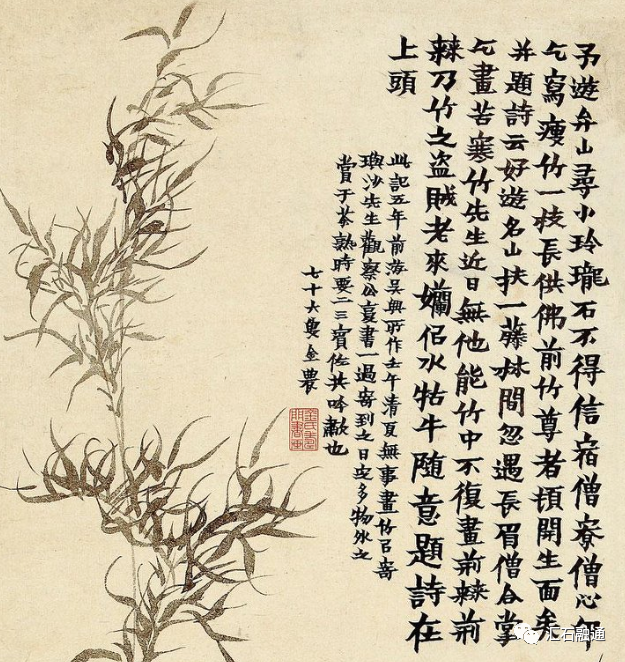 予遊弁山尋小玲瓏石不得信宿僧寮僧心
乞寫瘦竹一枝長供佛前竹尊者頓開生面矣
并題詩云好遊名山扶一藤林間忽遇長眉僧合掌
乞畫苦寒竹先生近日無他能竹中不復畫荊棘荊
棘乃竹之盜賊老來孏侶水牯牛隨意題詩在
上頭
此記五年前游吳興所作壬午清夏無事畫竹召寄
璵沙先生觀察公复書一過寄到之日定多物外之
賞于茶熟時要二三賓佐共吟歗也
七十六叟金農
汇石融通